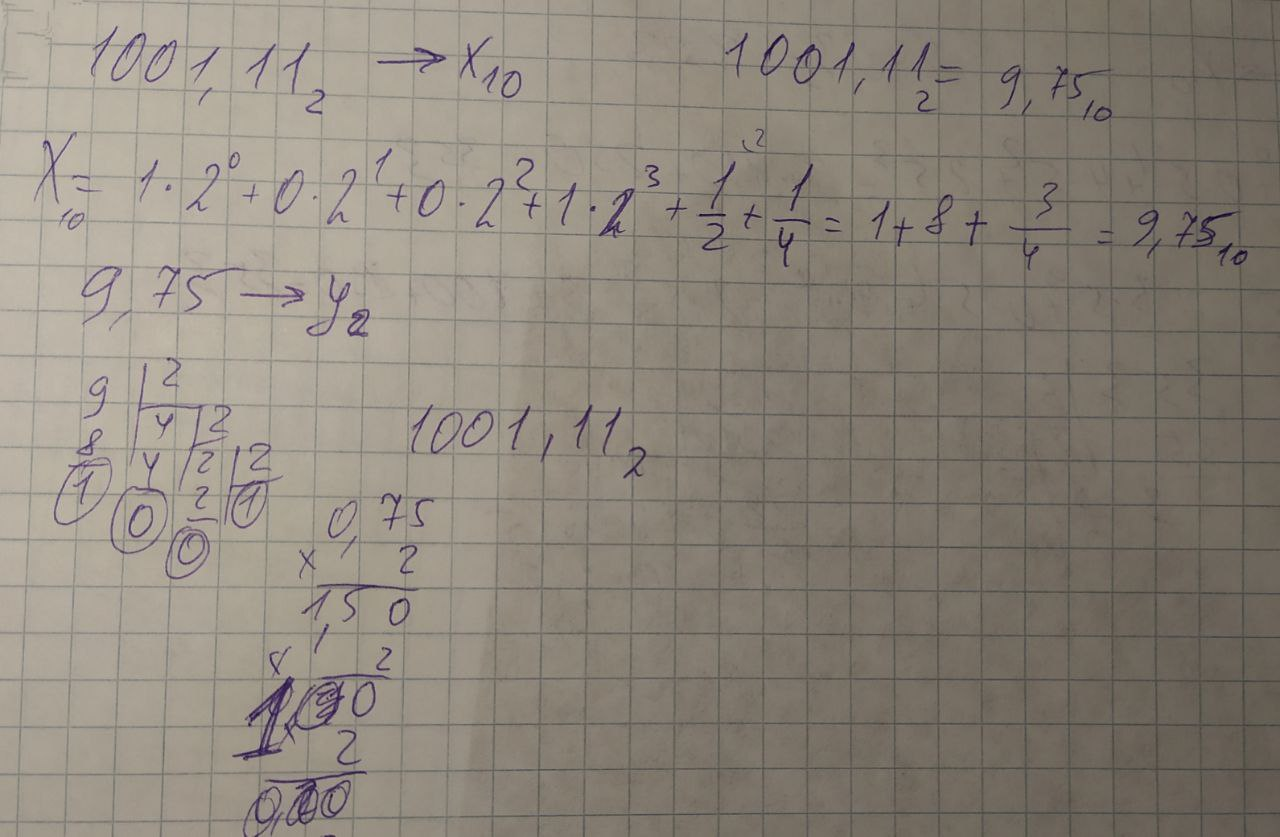 1001,11₂ → X₁₀ 1001,11₂ = 9,75₁₀
X₁₀ = 1·2⁰ + 0·2¹ + 0·2² + 1·2³ + 1/2 + 1/4 = 1 + 8 + 3/4 = 9,75₁₀
9,75 → y₂
9 | 2
8 4 | 2
1 4 2 | 2
0 2 1
0
1001,11₂
0,75
x 2
1,50
x 2
2